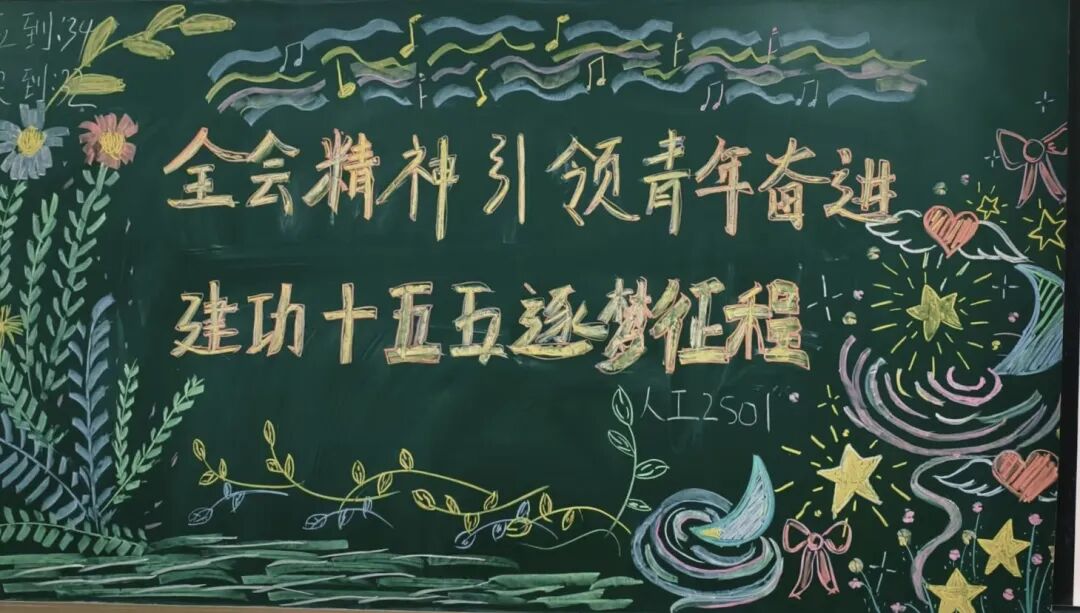 应到:34
实到:32
全会精神引领青年奋进
建功十五五逐梦征程
人工2501